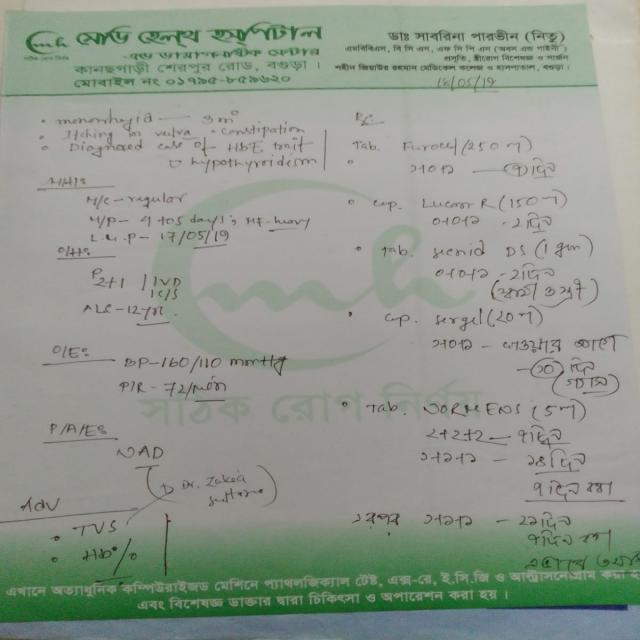 মেডি হেল্থ হসপিটাল
এন্ড ডায়াগনস্টিক সেন্টার
কানছগাড়ী শেরপুর রোড, বগুড়া।
মোবাইল নং ০১৭৯৫-৮৫৯৬২০
ডাঃ সাবরিনা পারভীন (নিতু)
এমবিবিএস, বি সি এস, এফ সি পি এস (অবস এন্ড গাইনী)
প্রসূতি, স্ত্রীরোগ বিশেষজ্ঞ ও সার্জন
শহীদ জিয়াউর রহমান মেডিকেল কলেজ ও হাসপাতাল, বগুড়া।
/05/19
• menorrhagia — 3m°
• Itching on vulva • Constipation
• Diagnosed case of HbE trait
hypothyroidism
M/H:
M/C - regular
M/P - 4 to 5 days; Mf- heavy
L.M.P - 17/05/19
O/H:
P 2+1 | 1VD
1C/S
ALC - 12 yr.
O/E:
BP - 160/110 mmHg
P/R - 72/min
P/A/E:
NAD
Dr. Zakia Sultana
Adv
• TVS
• Hb%
Rx
Tab. Furocef (250 )
১+০+১ — ৭ দিন
• Cap. Lucan R (150 )
০+০+১ - ২ দিন
• Tab. Secnid DS (1 gm)
০+০+১ - ২ দিন
(স্বামী ও স্ত্রী)
• Cap. Sergel (20 )
১+০+১ - খাওয়ার আগে
• Tab. NORMENS (5 )
২+২+২ — ৭ দিন
১+১+১ — ১৪ দিন
৭ দিন বন্ধ
১+১+১ — ২১ দিন
৭ দিন বন্ধ
সঠিক রোগ নির্ণয়
এখানে অত্যাধুনিক কম্পিউটারাইজড মেশিনে প্যাথলজিক্যাল টেষ্ট, এক্স-রে, ই.সি.জি ও আল্ট্রাসনোগ্রাম করা হয়
এবং বিশেষজ্ঞ ডাক্তার দ্বারা চিকিৎসা ও অপারেশন করা হয়।